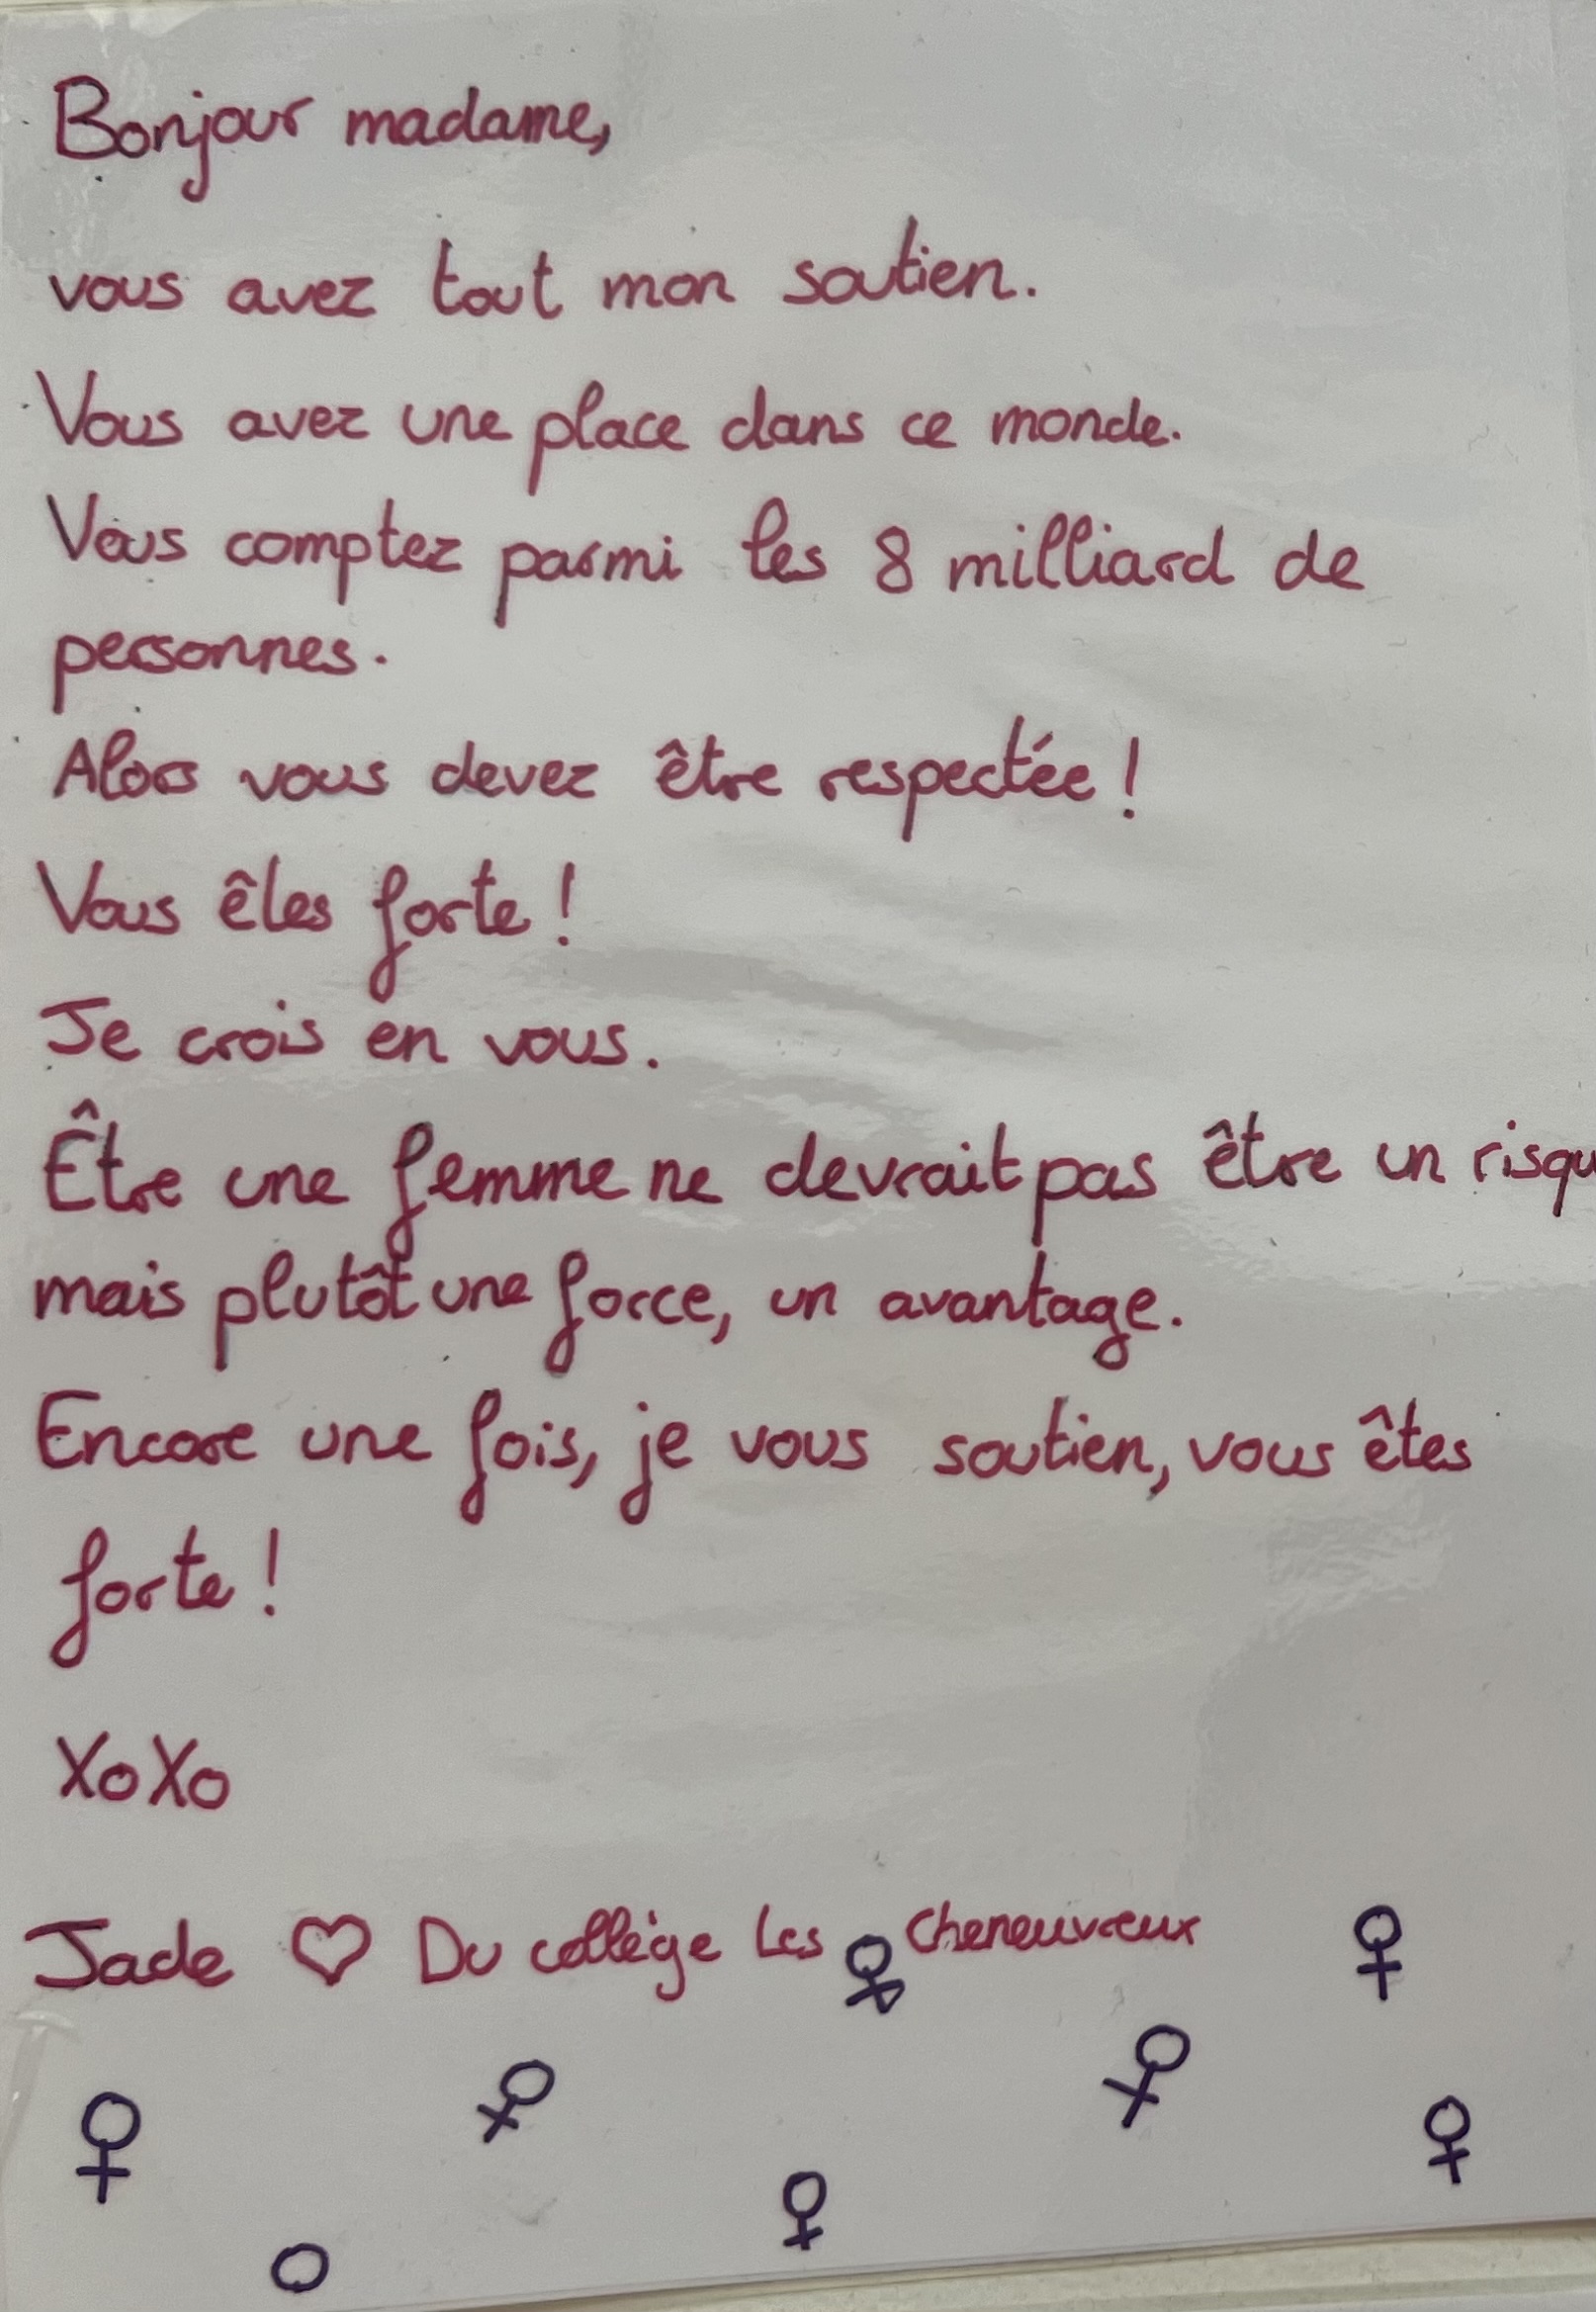 Bonjour madame,
vous avez tout mon soutien.
Vous avez une place dans ce monde.
Vous comptez parmi les 8 milliard de
personnes.
Alors vous devez être respectée !
Vous êles forte !
Je crois en vous.
Être une femme ne devrait pas être un risqu
mais plutôt une force, un avantage.
Encore une fois, je vous soutien, vous êtes
forte !
XoXo
Jade ♡ Du collège Les ♀ Cheneuvreux ♀
♀ ♀ ♀ ♀ ♀